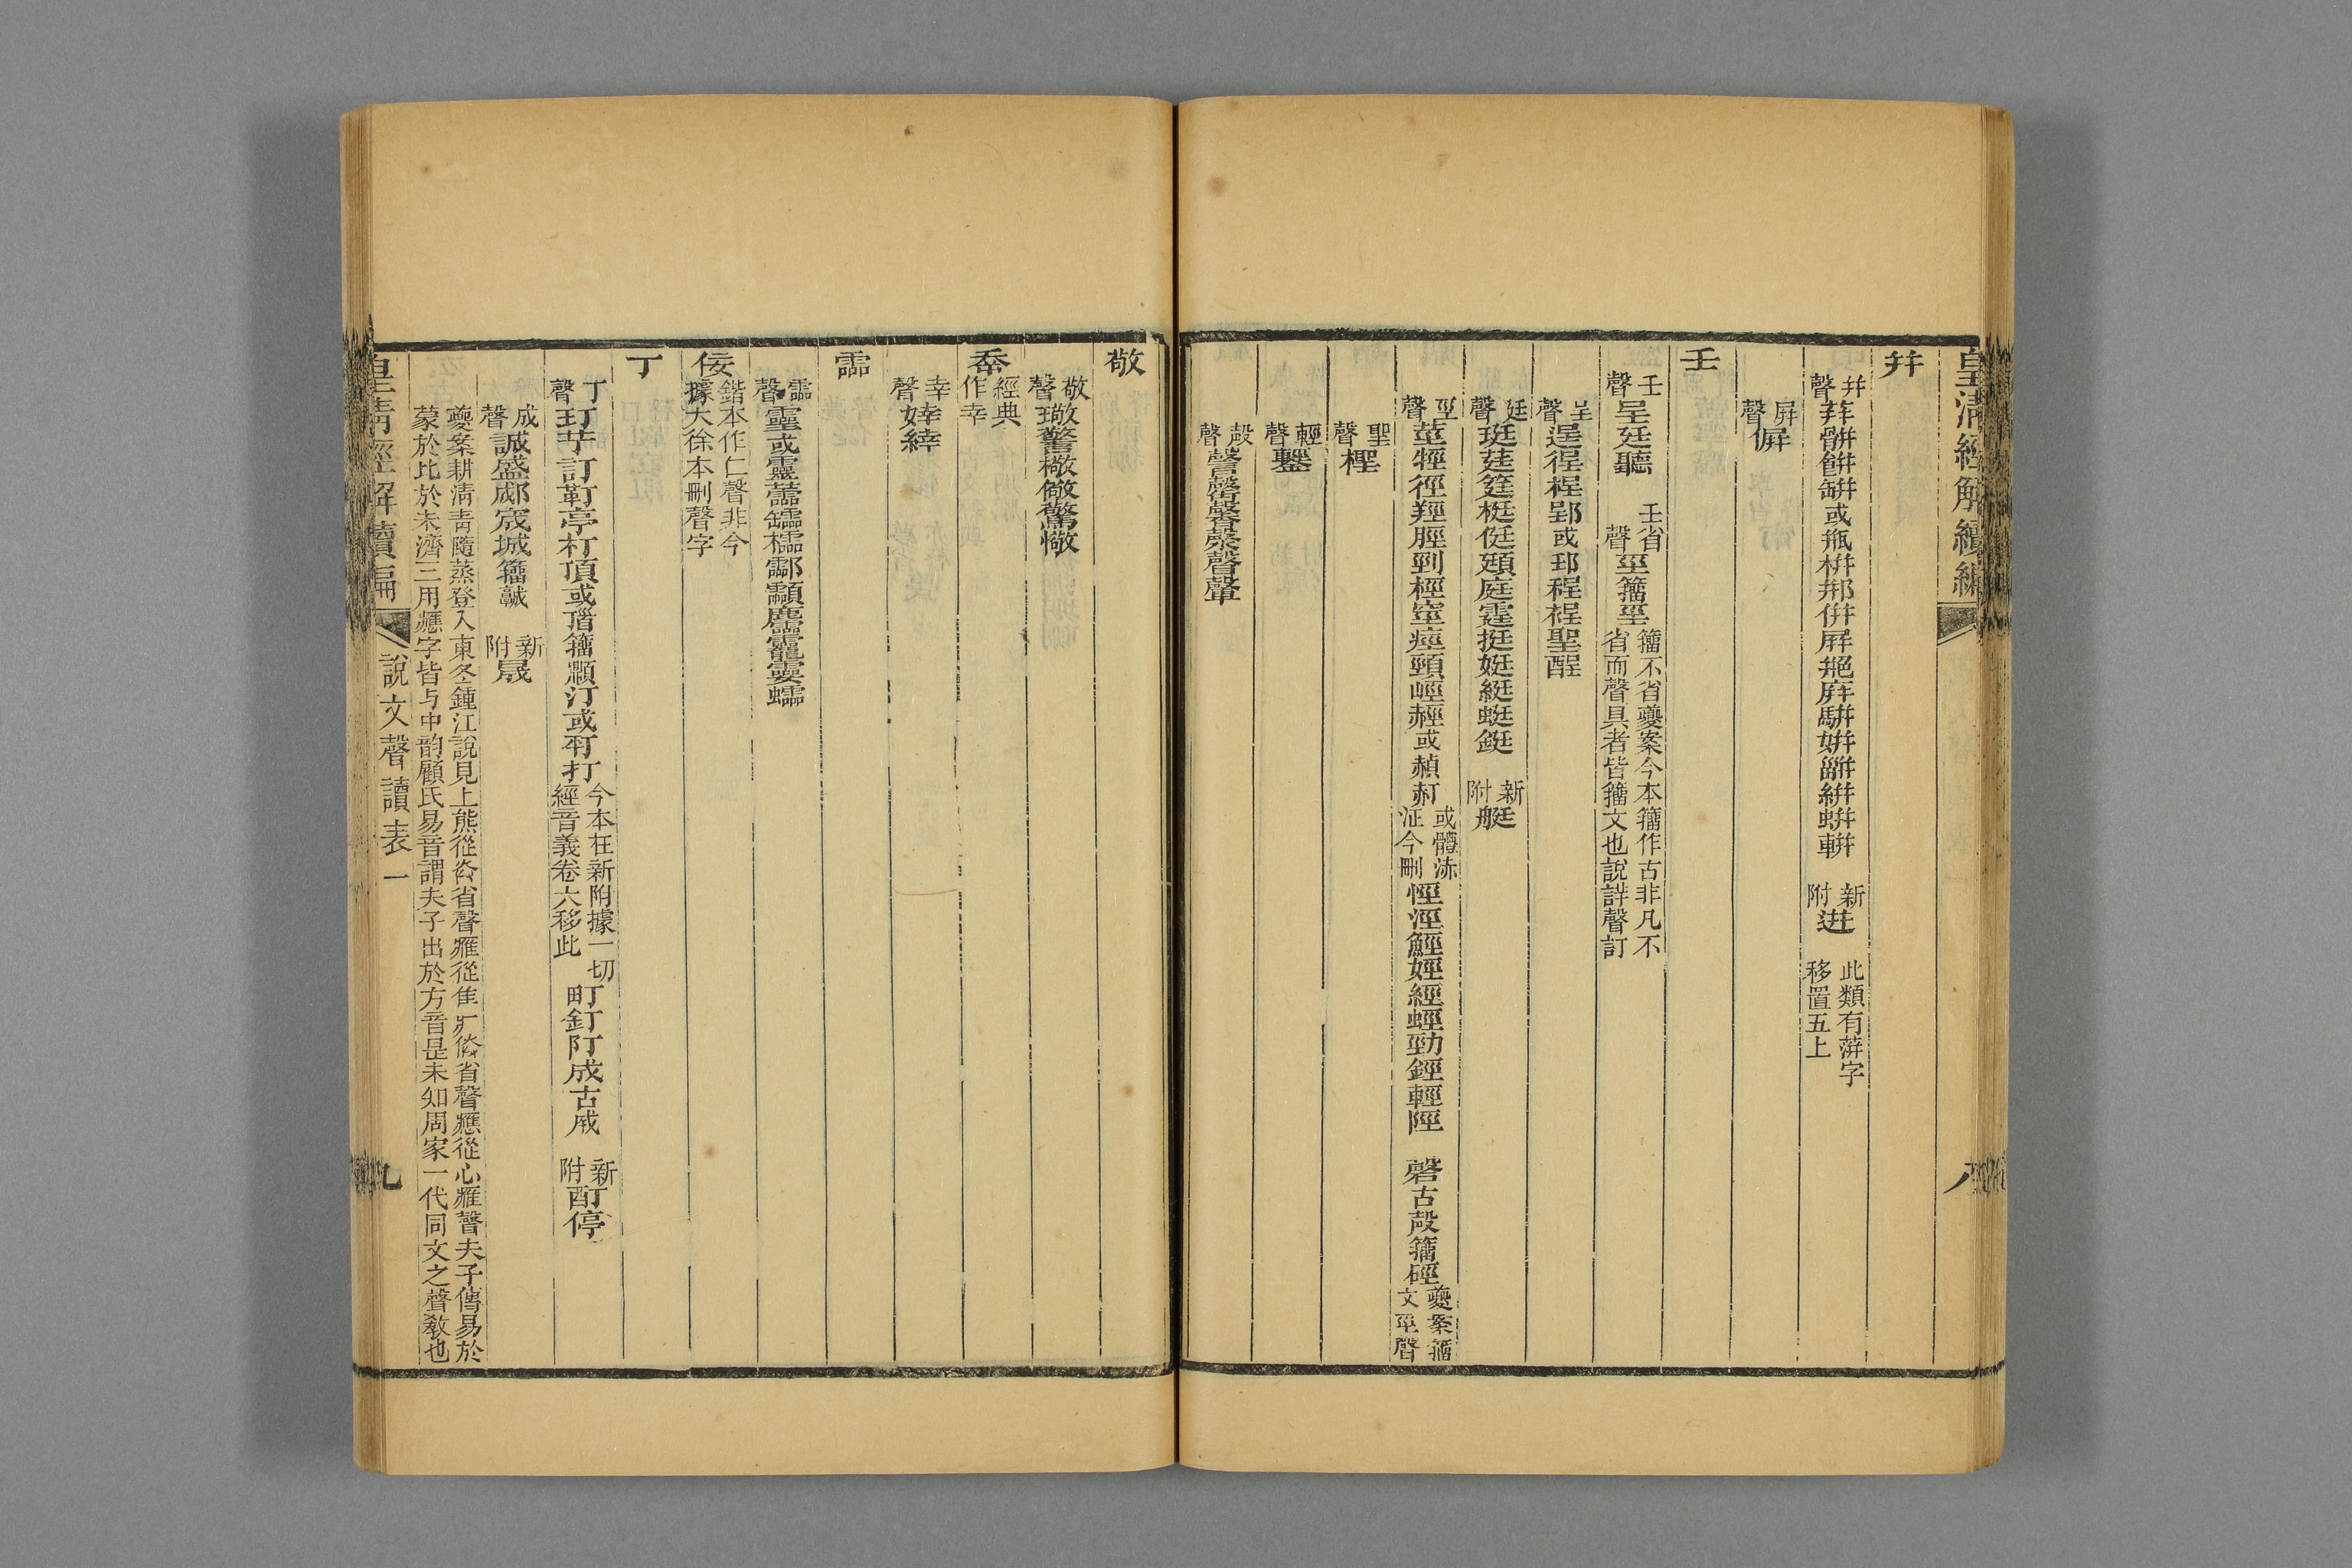 皇清經解續編
八
幷
幷聲 荓骿餠缾或瓶栟郱併屛𦫢庰駢姘𤮊絣蛢軿 新附迸 此類有蓱字移置五上
屛聲 偋
𡈼
𡈼聲 呈廷聽 𡈼省聲 巠籒𡴞 籒不省夔案今本籒作古非凡不省而聲具者皆籒文也說詳聲訂
呈聲 逞徎桯郢或𨛦程裎聖酲
廷聲 珽莛筳梃侹頲庭霆挺娗綎蜓鋌 新附艇
巠聲 莖牼徑羥脛剄桱窒痙頸巠赨或赬䞓 或體浾泟今刪 悭涇鯹娙經蛵勁鋞輕陘 磬古殸籒硜 夔案籒文巠聲
聖聲 檉
輕聲 䡖
殸聲 謦罄馨漀聲
敬
敬聲 璥警檠儆驚憼
㚔 經典作幸
幸聲 婞緈
霝
霝聲 靈或靈蘦𦉢櫺酃顬麢𩆜龗孁蠕
佞 鍇本作仁聲非今據大徐本刪聲字
丁
丁聲 玎芓訂靪亭朾頂或𩠑籒顁汀或𣲩打 今本在新附據一切經音義卷六移此 町釘阠成古𢦩 新附酊停
成聲 誠盛郕宬城籒𩫨 新附晟
夔案耕淸靑隨蒸登入東冬鍾江說見上熊從炎省聲雁從隹疒倐省聲應從心雁聲夫子傳易於蒙於比於未濟三用應字皆与中韵顧氏易音謂夫子出於方音是未知周家一代同文之聲敎也
皇淸經解續編
說文聲讀表一
九